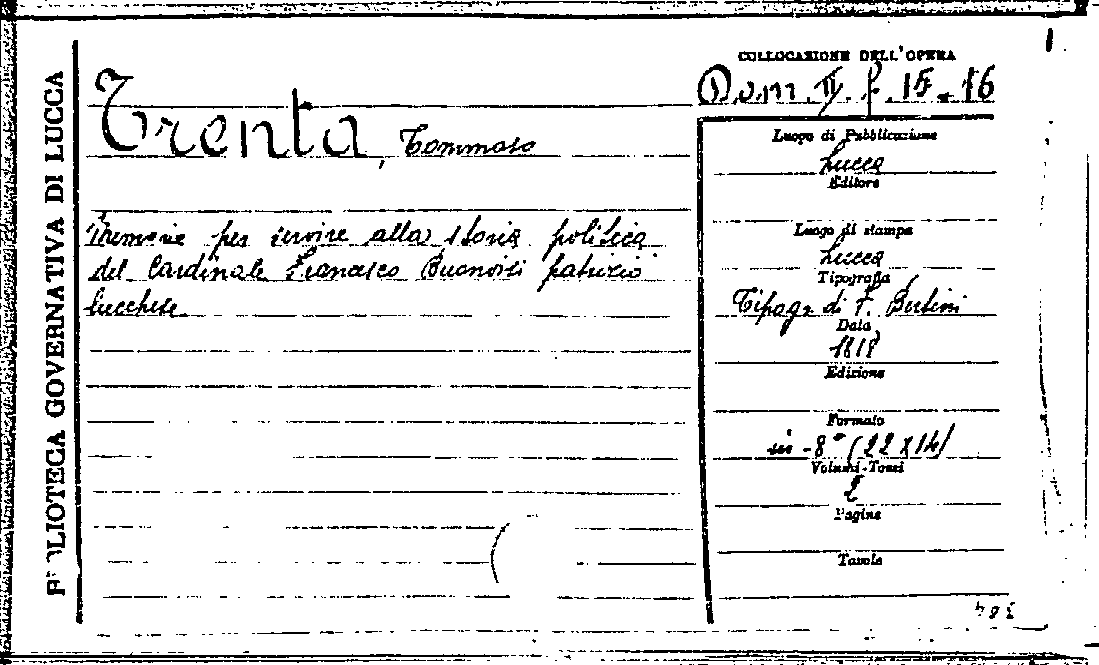 BIBLIOTECA GOVERNATIVA DI LUCCA
Trenta, Tommaso
Memorie per servire alla storia politica
del Cardinale Francesco Buonvisi patrizio
lucchese
COLLOCAZIONE DELL'OPERA
Dom. II. f. 15-16
Luogo di Pubblicazione
Lucca
Editore
Luogo di stampa
Lucca
Tipografia
Tipogr. di F. Bertini
Data
1818
Edizione
Formato
in-8° (22X14)
Volumi-Tomi
2
Pagine
Tavole